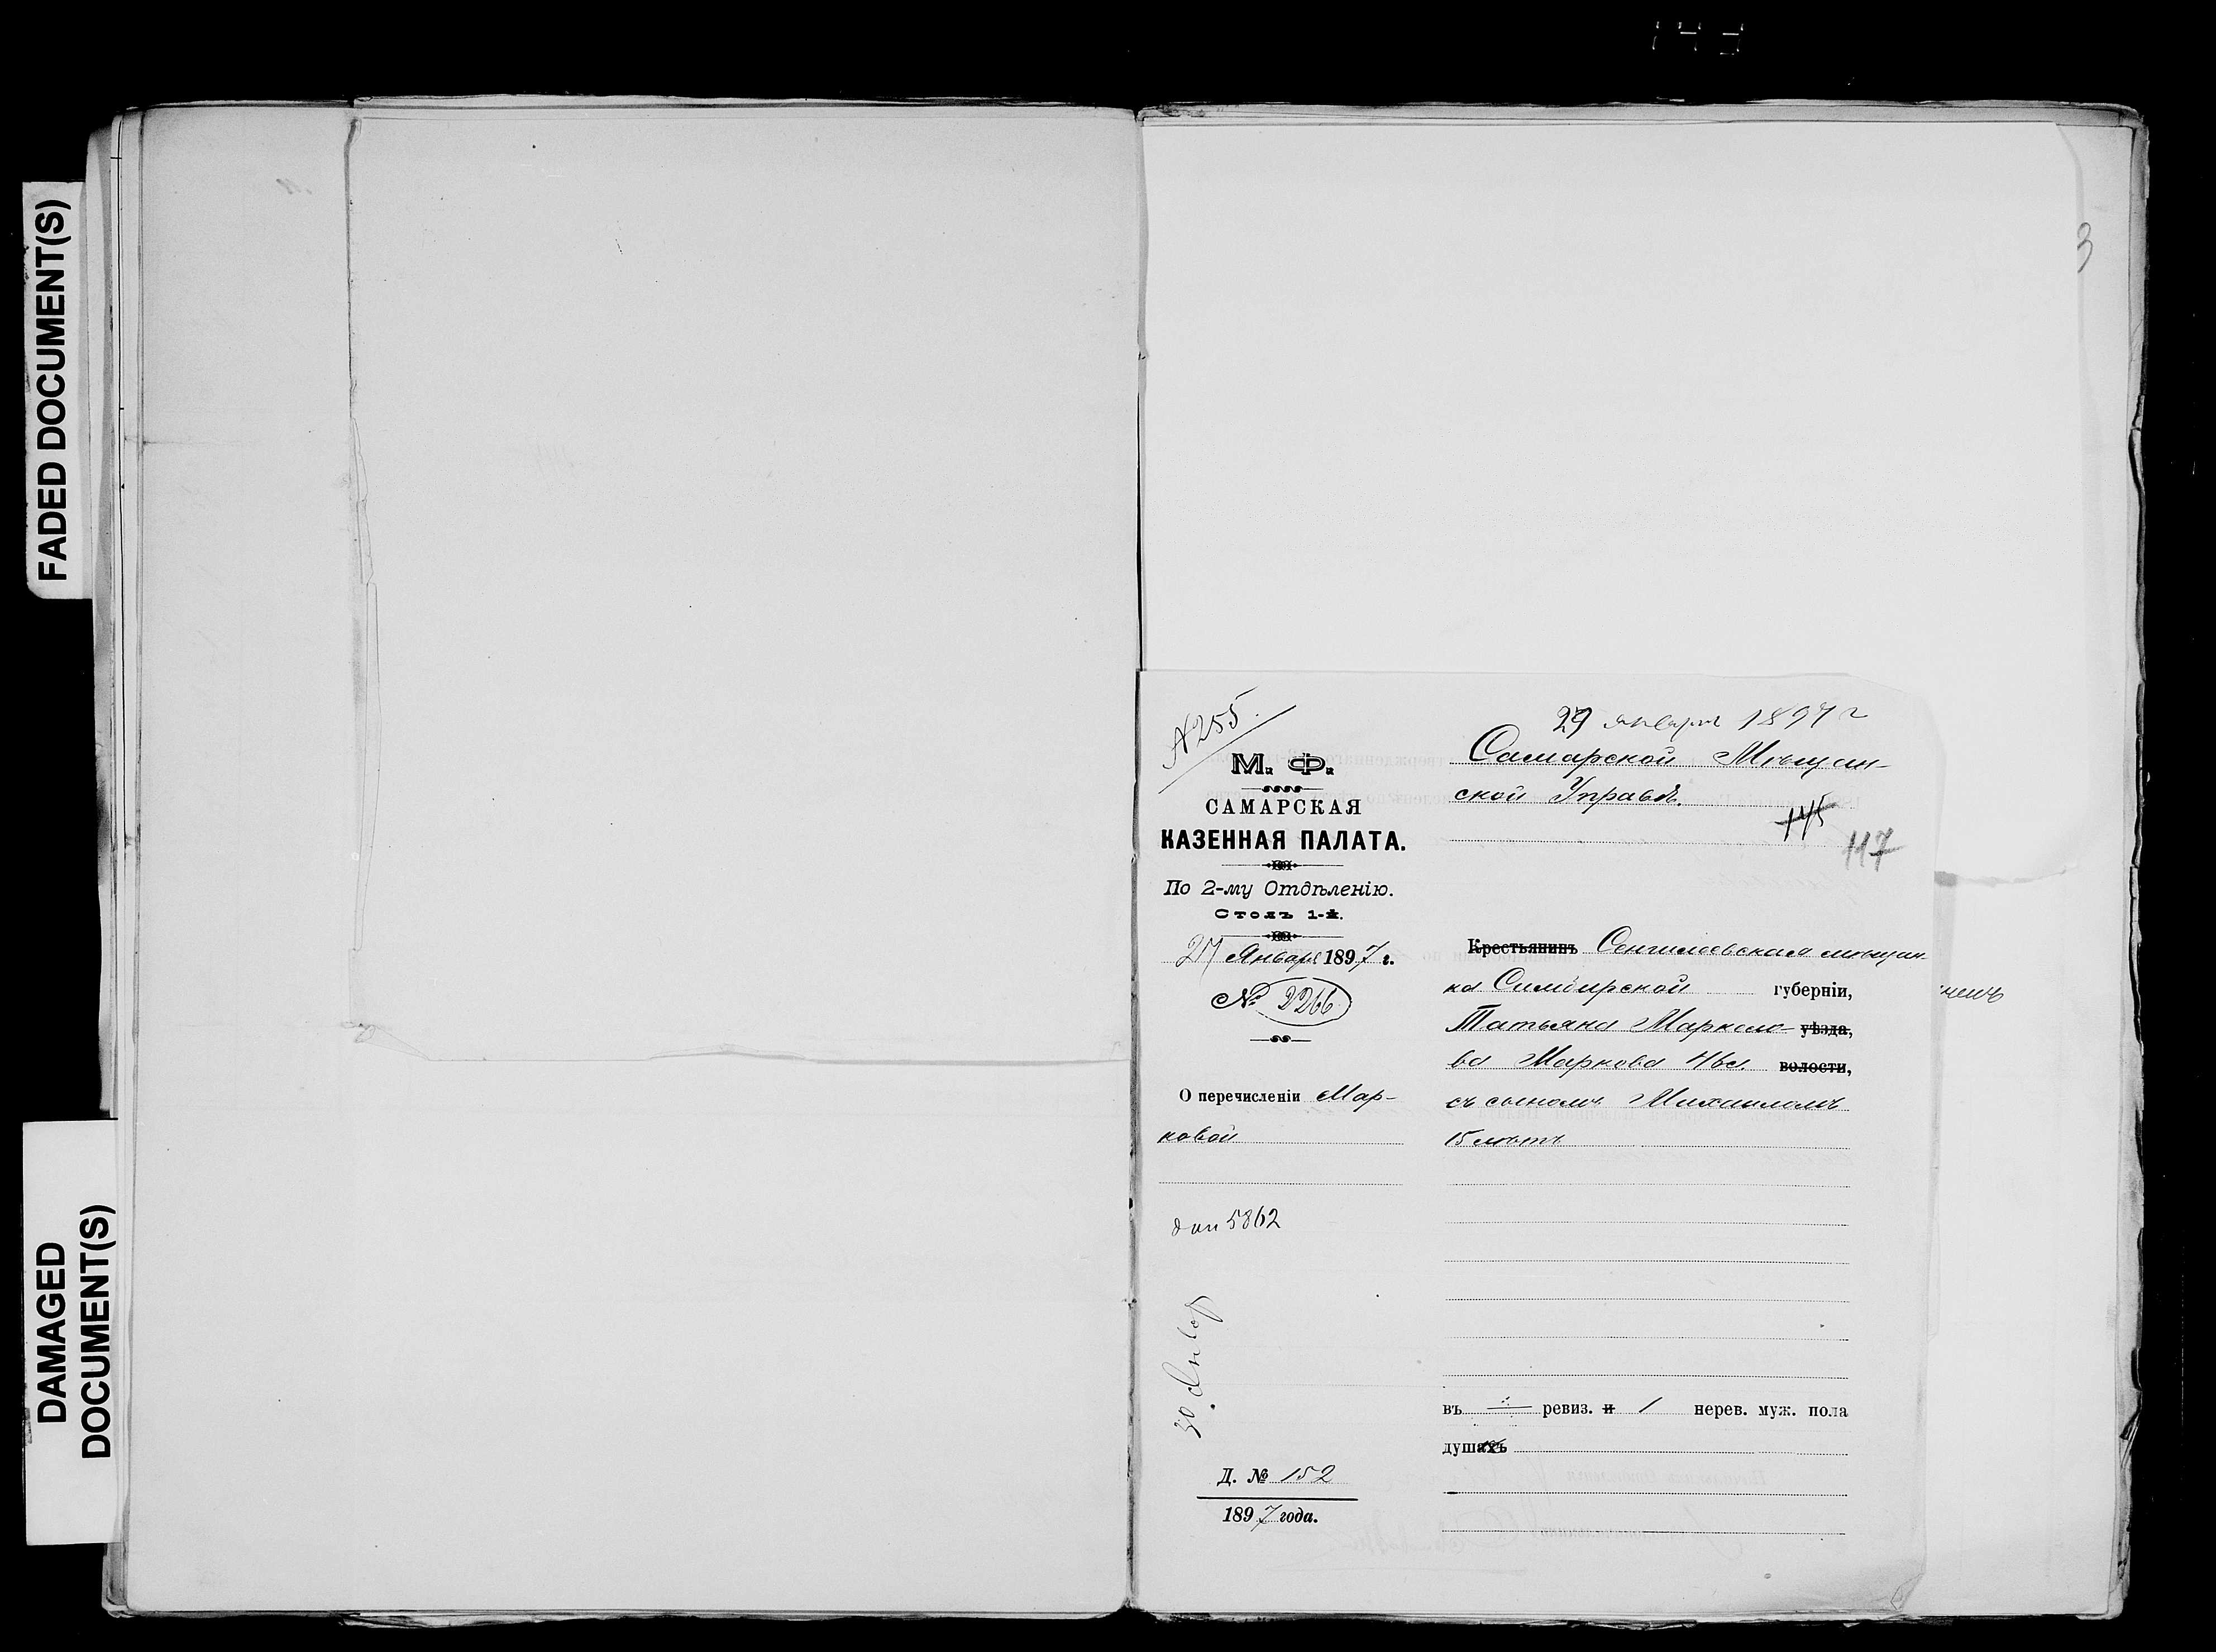 FADED DOCUMENT(S)
DAMAGED
DOCUMENT(S)
3
№ 255.
М. Ф.
САМАРСКАЯ
КАЗЕННАЯ ПАЛАТА.
По 2-му Отдѣленію.
Столъ 1-й.
27 Января 1897 г.
№ 2266
О перечисленіи Мар-
ковой
5862
30 Январ
Д. № 152
1897 года.
29 января 1897 г
Самарской Мѣщан-
ской Управѣ.
145
117
Крестьянинъ Сенгилеевская мѣщан-
ка Симбирской губерніи,
Татьяна Маркело- уѣзда,
ва Маркова волости,
съ сыномъ Михаиломъ
15 лѣтъ
въ ревиз. и 1 нерев. муж. пола
душахъ